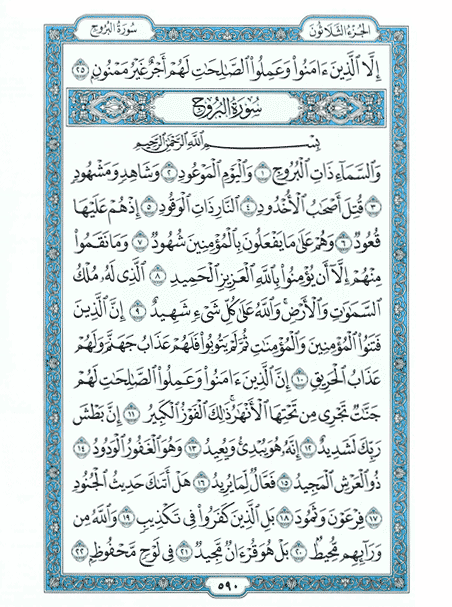 الجُزءُ الثَّلَاثُونَ
سُورَةُ البُرُوجِ
إِلَّا الَّذِينَ ءَامَنُوا۟ وَعَمِلُوا۟ الصَّٰلِحَٰتِ لَهُمْ أَجْرٌ غَيْرُ مَمْنُونٍۭ ٢٥
سُورَةُ البُرُوجِ
بِسْمِ اللَّهِ الرَّحْمَٰنِ الرَّحِيمِ
وَالسَّمَآءِ ذَاتِ الْبُرُوجِ ١ وَالْيَوْمِ الْمَوْعُودِ ٢ وَشَاهِدٍ وَمَشْهُودٍ
٣ قُتِلَ أَصْحَٰبُ الْأُخْدُودِ ٤ النَّارِ ذَاتِ الْوَقُودِ ٥ إِذْ هُمْ عَلَيْهَا
قُعُودٌ ٦ وَهُمْ عَلَىٰ مَا يَفْعَلُونَ بِالْمُؤْمِنِينَ شُهُودٌ ٧ وَمَا نَقَمُوا۟
مِنْهُمْ إِلَّآ أَن يُؤْمِنُوا۟ بِاللَّهِ الْعَزِيزِ الْحَمِيدِ ٨ الَّذِى لَهُۥ مُلْكُ
السَّمَٰوَٰتِ وَالْأَرْضِ ۚ وَاللَّهُ عَلَىٰ كُلِّ شَىْءٍ شَهِيدٌ ٩ إِنَّ الَّذِينَ
فَتَنُوا۟ الْمُؤْمِنِينَ وَالْمُؤْمِنَٰتِ ثُمَّ لَمْ يَتُوبُوا۟ فَلَهُمْ عَذَابُ جَهَنَّمَ وَلَهُمْ
عَذَابُ الْحَرِيقِ ١٠ إِنَّ الَّذِينَ ءَامَنُوا۟ وَعَمِلُوا۟ الصَّٰلِحَٰتِ لَهُمْ
جَنَّٰتٌ تَجْرِى مِن تَحْتِهَا الْأَنْهَٰرُ ۚ ذَٰلِكَ الْفَوْزُ الْكَبِيرُ ١١ إِنَّ بَطْشَ
رَبِّكَ لَشَدِيدٌ ١٢ إِنَّهُۥ هُوَ يُبْدِئُ وَيُعِيدُ ١٣ وَهُوَ الْغَفُورُ الْوَدُودُ ١٤
ذُو الْعَرْشِ الْمَجِيدُ ١٥ فَعَّالٌ لِّمَا يُرِيدُ ١٦ هَلْ أَتَىٰكَ حَدِيثُ الْجُنُودِ
١٧ فِرْعَوْنَ وَثَمُودَ ١٨ بَلِ الَّذِينَ كَفَرُوا۟ فِى تَكْذِيبٍ ١٩ وَاللَّهُ مِن
وَرَآئِهِم مُّحِيطٌۢ ٢٠ بَلْ هُوَ قُرْءَانٌ مَّجِيدٌ ٢١ فِى لَوْحٍ مَّحْفُوظٍۭ ٢٢
٥٩٠